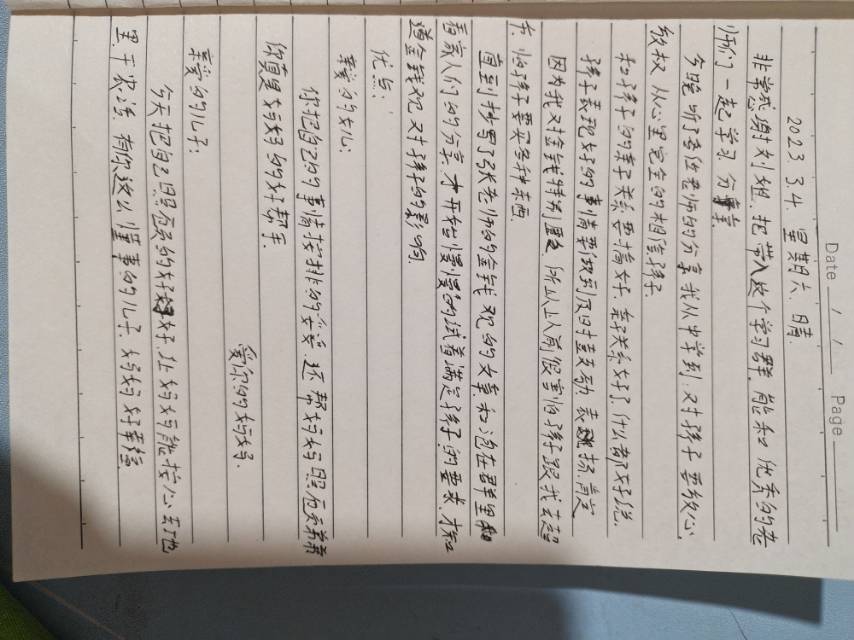 Date / / Page
2023. 3.4. 星期六. 晴.
非常感谢刘姐. 把带入这个学习群. 能和优秀的老
师们一起学习. 分享.
今晚听了各位老师的分享. 我从中学到. 对孩子要放心.
放权. 从心里完全的相信孩子.
和孩子的亲子关系要搞好. 亲子关系好了. 什么都好说.
孩子表现好的事情要做到及时鼓励. 表扬. 肯定
因为我对金钱特别匮乏. 所以以前很害怕孩子跟我去超
市. 怕孩子要买各种东西.
直到抄写了张老师的金钱观的文章. 和泡在群里
看家人们的分享. 才开始慢慢的试着满足孩子的要求. 才知
道金钱观. 对孩子的影响.
优点:
亲爱的女儿:
你把自己的事情安排的妥妥. 还帮妈妈照顾弟弟
你真是妈妈的好帮手.
爱你的妈妈.
亲爱的儿子:
今天把自己照顾的好好. 让妈妈能安心去地
里干农活. 有你这么懂事的儿子. 妈妈好幸福.